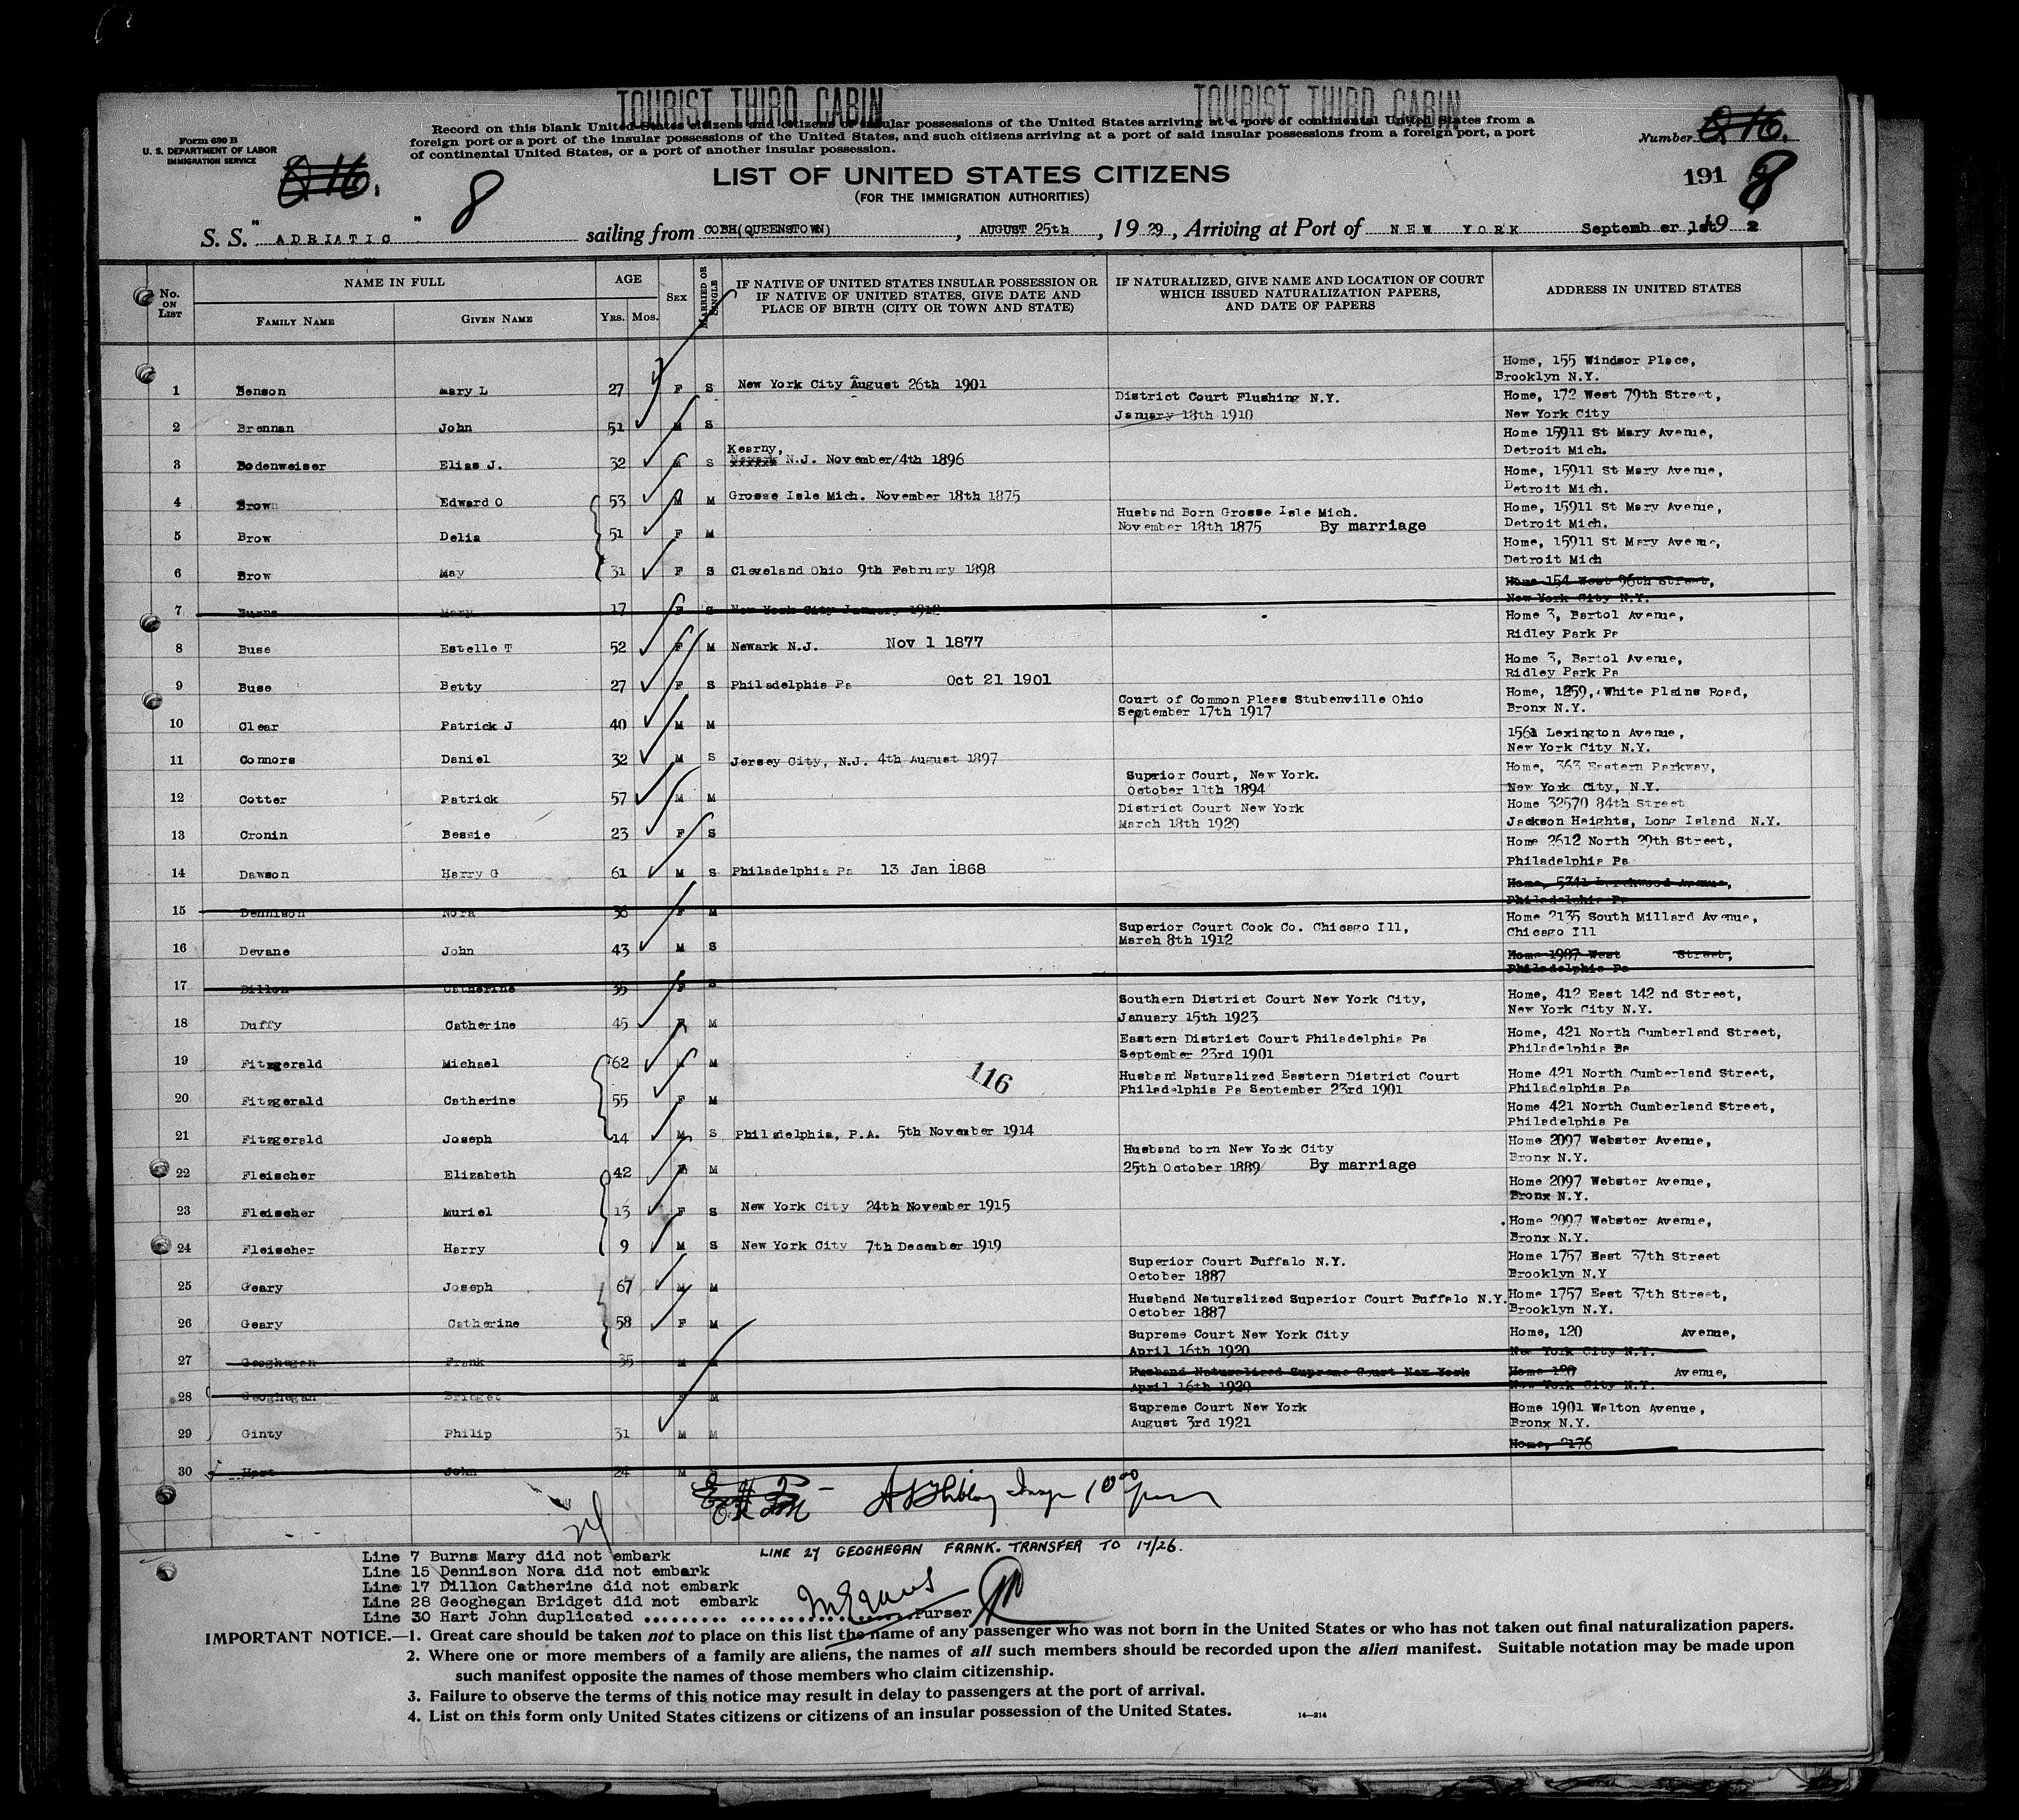 TOURIST THIRD CABIN TOURIST THIRD CABIN
Form 630 B
U. S. DEPARTMENT OF LABOR
IMMIGRATION SERVICE
Record on this blank United States citizens and citizens of insular possessions of the United States arriving at a port of continental United States from a
foreign port or a port of the insular possessions of the United States, and such citizens arriving at a port of said insular possessions from a foreign port, a port
of continental United States, or a port of another insular possession.
Number
8
LIST OF UNITED STATES CITIZENS
(FOR THE IMMIGRATION AUTHORITIES)
191 8
S. S. " ADRIATIC " sailing from COBH(QUEENSTOWN) , AUGUST 25th , 19 29 , Arriving at Port of NEW YORK September ,1st 19 2
No. ON LIST
NAME IN FULL
FAMILY NAME GIVEN NAME
AGE
YRS. MOS.
SEX
MARRIED OR SINGLE
IF NATIVE OF UNITED STATES INSULAR POSSESSION OR
IF NATIVE OF UNITED STATES, GIVE DATE AND
PLACE OF BIRTH (CITY OR TOWN AND STATE)
IF NATURALIZED, GIVE NAME AND LOCATION OF COURT
WHICH ISSUED NATURALIZATION PAPERS,
AND DATE OF PAPERS
ADDRESS IN UNITED STATES
Home, 155 Windsor Place,
Brooklyn N.Y.
1 Benson Mary L 27 F S New York City August 26th 1901
District Court Flushing N.Y. Home, 172 West 79th Street,
January 18th 1910 New York City
2 Brennan John 51 M S
Home 15911 St Mary Avenue,
Kearny, Detroit Mich.
3 Bodenweiser Elias J. 32 M S Newark N.J. November/4th 1896
Home, 15911 St Mary Avenue,
Detroit Mich.
4 Brown Edward O 53 M M Grosse Isle Mich. November 18th 1875
Husband Born Grosse Isle Mich. Home, 15911 St Mary Avenue,
November 18th 1875 By marriage Detroit Mich.
5 Brow Delia 51 F M
Home, 15911 St Mary Avenue,
Detroit Mich
6 Brow May 31 F S Cleveland Ohio 9th February 1898
Home 154 West 96th Street,
New York City N.Y.
7 Burns Mary 17 F S New York City January 1912
Home 3, Bartol Avenue,
Ridley Park Pa
8 Buse Estelle T 52 F M Newark N.J. Nov 1 1877
Home 3, Bartol Avenue,
Ridley Park Pa
9 Buse Betty 27 F S Philadelphia Pa Oct 21 1901
Court of Common Pleas Stubenville Ohio Home, 1259, White Plains Road,
September 17th 1917 Bronx N.Y.
10 Clear Patrick J 40 M M
1561 Lexington Avenue,
New York City N.Y.
11 Connors Daniel 32 M S Jersey City, N.J. 4th August 1897
Home, 363 Eastern Parkway,
Superior Court, New York.
October 11th 1894 New York City, N.Y.
12 Cotter Patrick 57 M M
District Court New York Home 32570 84th Street
March 18th 1929 Jackson Heights, Long Island N.Y.
13 Cronin Bessie 23 F S
Home 2612 North 29th Street,
Philadelphia Pa
14 Dawson Harry G 61 M S Philadelphia Pa 13 Jan 1868
Home, 5341 Larchwood Avenue,
Philadelphia Pa
15 Dennison Nora 36 F M
Superior Court Cook Co. Chicago Ill, Home 2135 South Millard Avenue,
March 8th 1912 Chicago Ill
16 Devane John 43 M S
Home 1987 West Street,
Philadelphia Pa
17 Dillon Catherine 35 F S
Southern District Court New York City, Home, 412 East 142 nd Street,
January 15th 1923 New York City N.Y.
18 Duffy Catherine 45 F M
Eastern District Court Philadelphia Pa Home, 421 North Cumberland Street,
September 23rd 1901 Philadelphia Pa
19 Fitzgerald Michael 62 M M
Husband Naturalized Eastern District Court Home 421 North Cumberland Street,
Philadelphia Pa September 23rd 1901 Philadelphia Pa
116
20 Fitzgerald Catherine 55 F M
Home 421 North Cumberland Street,
Philadelphia Pa
21 Fitzgerald Joseph 14 M S Philadelphia, P.A. 5th November 1914
Husband born New York City Home 2097 Webster Avenue,
25th October 1889 By marriage Bronx N.Y.
22 Fleischer Elizabeth 42 F M
Home 2097 Webster Avenue,
Bronx N.Y.
23 Fleischer Muriel 13 F S New York City 24th November 1915
Home 2097 Webster Avenue,
Bronx N.Y.
24 Fleischer Harry 9 M S New York City 7th December 1919
Superior Court Buffalo N.Y. Home 1757 East 37th Street
October 1887 Brooklyn N.Y
25 Geary Joseph 67 M M
Husband Naturalized Superior Court Buffalo N.Y. Home 1757 East 37th Street,
October 1887 Brooklyn N.Y.
26 Geary Catherine 58 F M
Supreme Court New York City Home, 120 Avenue,
April 16th 1920 New York City N.Y.
27 Geoghegan Frank 35 M M
Husband Naturalized Supreme Court New York Home 120 Avenue,
April 16th 1920 New York City N.Y.
28 Geoghegan Bridget F M
Supreme Court New York Home 1901 Walton Avenue,
August 3rd 1921 Bronx N.Y.
29 Ginty Philip 31 M M
Home, 2176
30 Hart John 24 M
Line 7 Burns Mary did not embark
LINE 27 GEOGHEGAN FRANK. TRANSFER TO 17/26.
Line 15 Dennison Nora did not embark
Line 17 Dillon Catherine did not embark
Line 28 Geoghegan Bridget did not embark
Line 30 Hart John duplicated ......... ................Purser
IMPORTANT NOTICE.—1. Great care should be taken not to place on this list the name of any passenger who was not born in the United States or who has not taken out final naturalization papers.
2. Where one or more members of a family are aliens, the names of all such members should be recorded upon the alien manifest. Suitable notation may be made upon
such manifest opposite the names of those members who claim citizenship.
3. Failure to observe the terms of this notice may result in delay to passengers at the port of arrival.
4. List on this form only United States citizens or citizens of an insular possession of the United States.
14—214